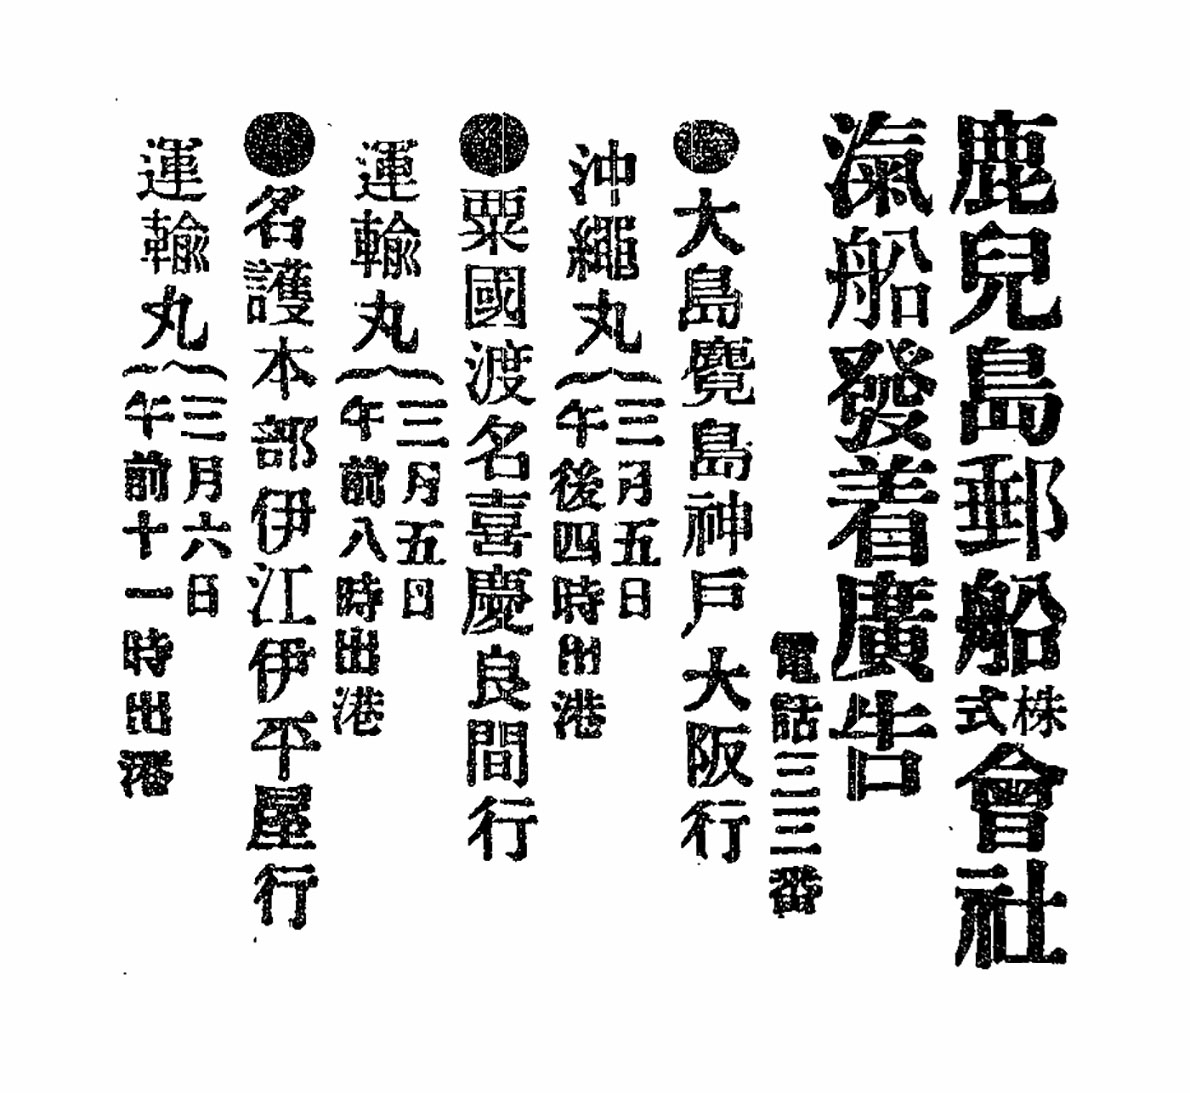 鹿兒島郵船株式會社
滊船發着廣告
電話三三番
●大島鹿兒島神戸大阪行
沖繩丸
三月五日
午後四時出港
●粟國渡名喜慶良間行
運輸丸
三月五日
午前八時出港
●名護本部伊江伊平屋行
運輸丸
三月六日
午前十一時出港